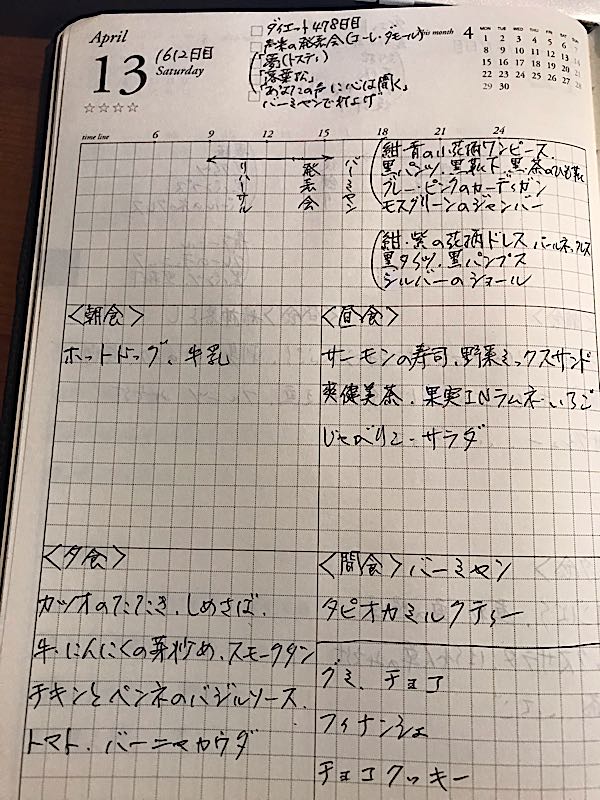 April
13
1612日目
Saturday
☆☆☆☆
□ ダイエット478日目
□ 声楽の発表会(エーレ・ダモール)
「夢(トスティ)」
「落葉松」
「あなたの声に心は開く」
□ バーミヤンで打上げ
this month 4
MON TUE WED THU FRI SAT SUN
1 2 3 4 5 6 7
8 9 10 11 12 13 14
15 16 17 18 19 20 21
22 23 24 25 26 27 28
29 30
time line 6 9 12 15 18 21 24
リハーサル
発表会
バーミヤン
紺・青の小花柄ワンピース、
黒パンツ、黒靴下、黒・茶のひも靴
グレー・ピンクのカーディガン
モスグリーンのジャンパー
紺・紫の花柄ドレス パールネックレス
黒タイツ、黒パンプス
シルバーのショール
<朝食>
ホットドッグ、牛乳
<昼食>
サーモンの寿司、野菜ミックスサンド
爽健美茶、果実INラムネ・いちご
じゃがりこ・サラダ
<夕食>
カツオのたたき、しめさば、
牛、にんにくの芽炒め、スモークタン
チキンとペンネのバジルソース、
トマト、バーニャカウダ
<間食> バーミヤン
タピオカミルクティー
グミ、チョコ
フィナンシェ
チョコクッキー